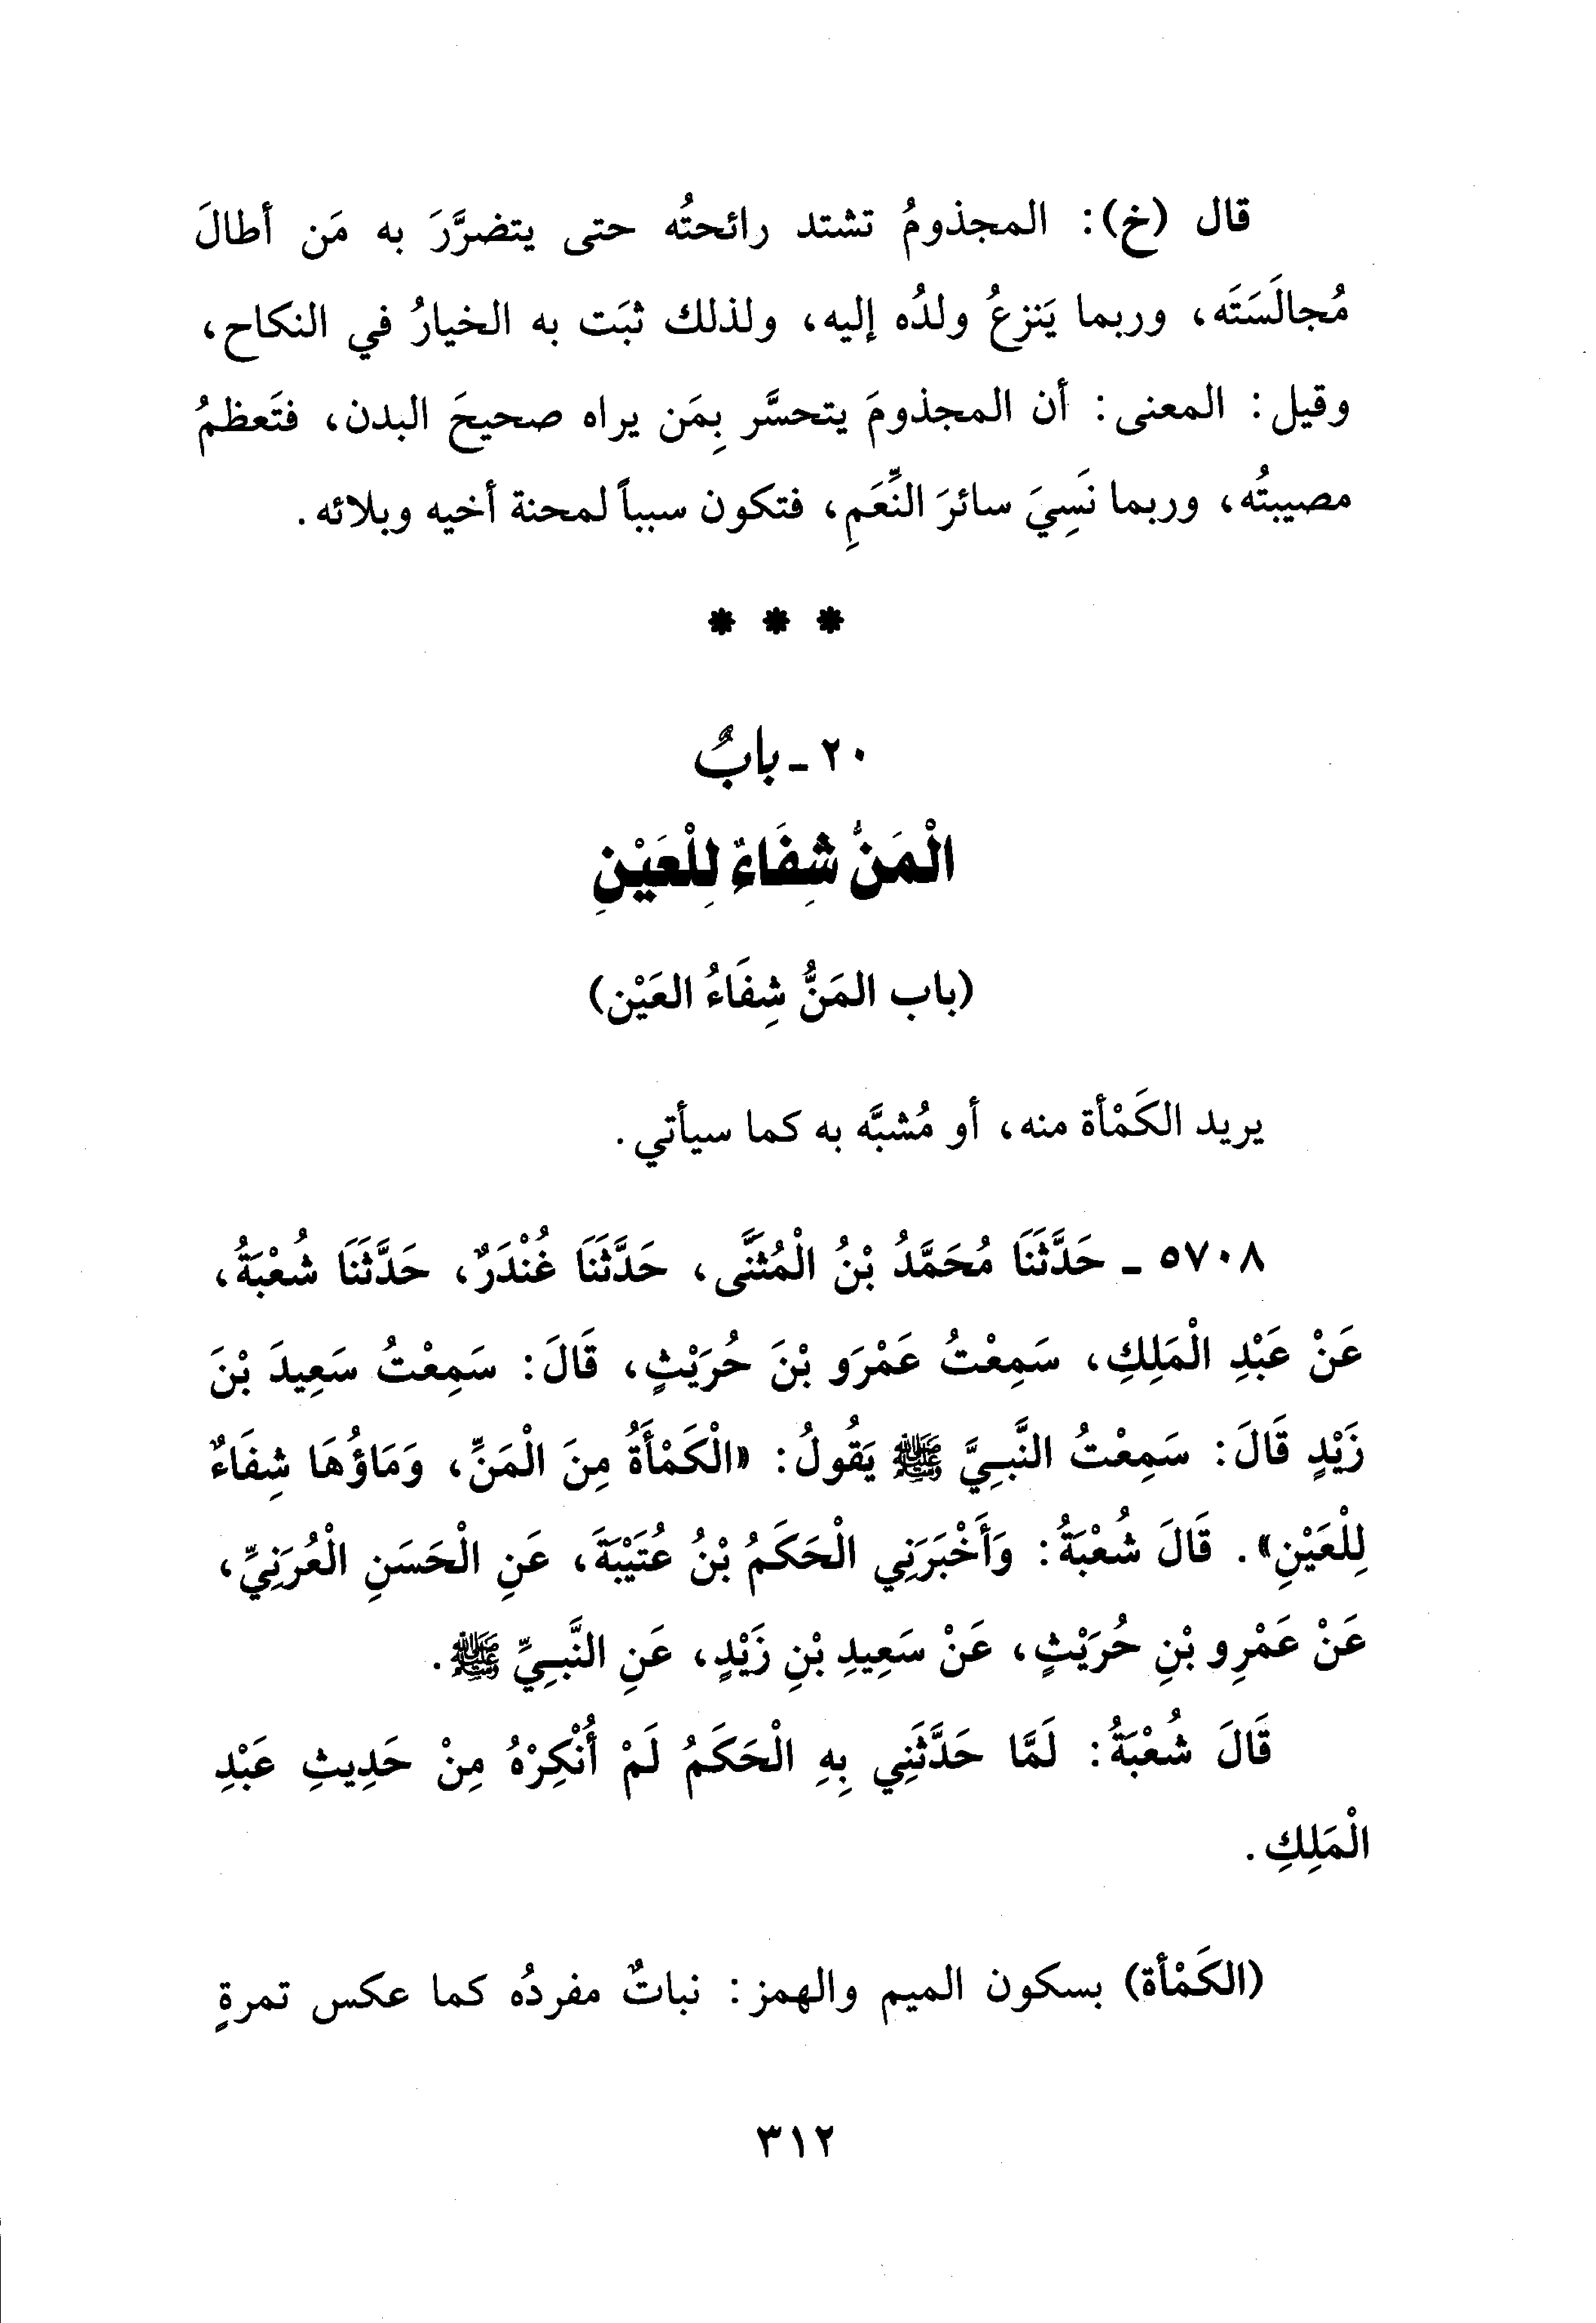 قال (خ): المجذومُ تشتد رائحتُه حتى يتضرَّرَ به مَن أطالَ
مُجالَسَتَه، وربما يَنزعُ ولدُه إليه، ولذلك ثبَت به الخيارُ في النكاح،
وقيل: المعنى: أن المجذومَ يتحسَّر بِمَن يراه صحيحَ البدن، فتَعظمُ
مصيبتُه، وربما نَسِيَ سائرَ النِّعَمِ، فتكون سبباً لمحنة أخيه وبلائه.
* * *
٢٠ - بابٌ
الْمَنُّ شِفَاءٌ لِلْعَيْنِ
(باب المَنُّ شِفَاءُ العَيْن)
يريد الكَمْأة منه، أو مُشبَّه به كما سيأتي.
٥٧٠٨ - حَدَّثَنَا مُحَمَّدُ بْنُ الْمُثَنَّى، حَدَّثَنَا غُنْدَرٌ، حَدَّثَنَا شُعْبَةُ،
عَنْ عَبْدِ الْمَلِكِ، سَمِعْتُ عَمْرَو بْنَ حُرَيْثٍ، قَالَ: سَمِعْتُ سَعِيدَ بْنَ
زَيْدٍ قَالَ: سَمِعْتُ النَّبِيَّ ﷺ يَقُولُ: «الْكَمْأَةُ مِنَ الْمَنِّ، وَمَاؤُهَا شِفَاءٌ
لِلْعَيْنِ». قَالَ شُعْبَةُ: وَأَخْبَرَنِي الْحَكَمُ بْنُ عُتَيْبَةَ، عَنِ الْحَسَنِ الْعُرَنِيِّ،
عَنْ عَمْرِو بْنِ حُرَيْثٍ، عَنْ سَعِيدِ بْنِ زَيْدٍ، عَنِ النَّبِيِّ ﷺ.
قَالَ شُعْبَةُ: لَمَّا حَدَّثَنِي بِهِ الْحَكَمُ لَمْ أُنْكِرْهُ مِنْ حَدِيثِ عَبْدِ
الْمَلِكِ.
(الكَمْأة) بسكون الميم والهمز: نباتٌ مفردُه كما عكس تمرةٍ
٣١٢